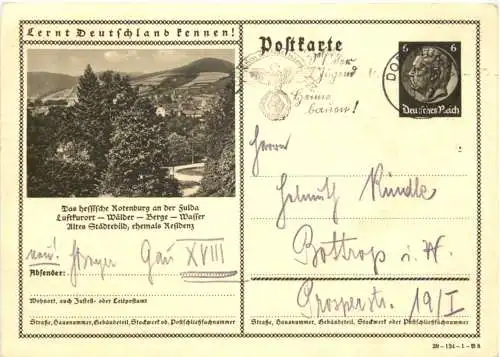 Lernt Deutschland kennen!
Das hessische Rotenburg an der Fulda
Luftkurort — Wälder — Berge — Wasser
Altes Städtebild, ehemals Residenz
Gau XVIII
Absender:
Wohnort, auch Zustell- oder Leitpostamt
Straße, Hausnummer, Gebäudeteil, Stockwerk od. Postschließfachnummer
Postkarte
6 6
Deutsches Reich
der
Jugend
Heime
bauen!
DO
Herrn
Helmuth Kündle
Bottrop i. W.
Prosperstr. 19/I
Straße, Hausnummer, Gebäudeteil, Stockwerk oder Postschließfachnummer
39-124-1-B8